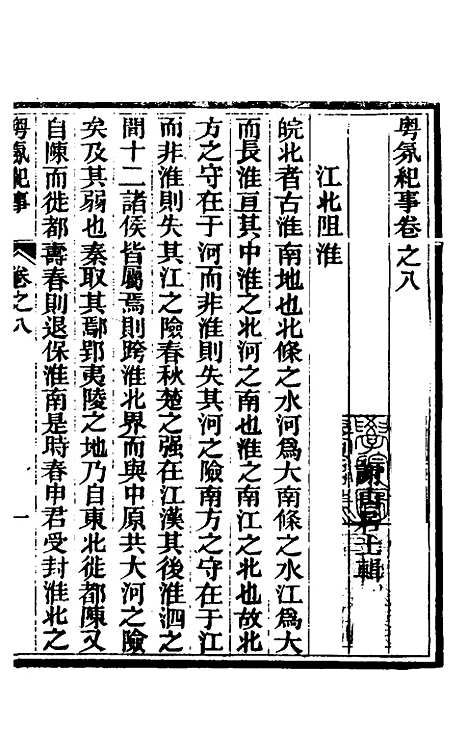 粤氛紀事卷之八
謝山居士輯
江北阻淮
皖北者古淮南地也北條之水河爲大南條之水江爲大
而長淮亘其中淮之北河之南也淮之南江之北也故北
方之守在于河而非淮則失其河之險南方之守在于江
而非淮則失其江之險春秋楚之强在江漢其後淮泗之
間十二諸侯皆屬焉則跨淮北界而與中原共大河之險
矣及其弱也秦取其鄢郢夷陵之地乃自東北徙都陳又
自陳而徙都壽春則退保淮南是時春申君受封淮北之
粤氛紀事
卷之八
一